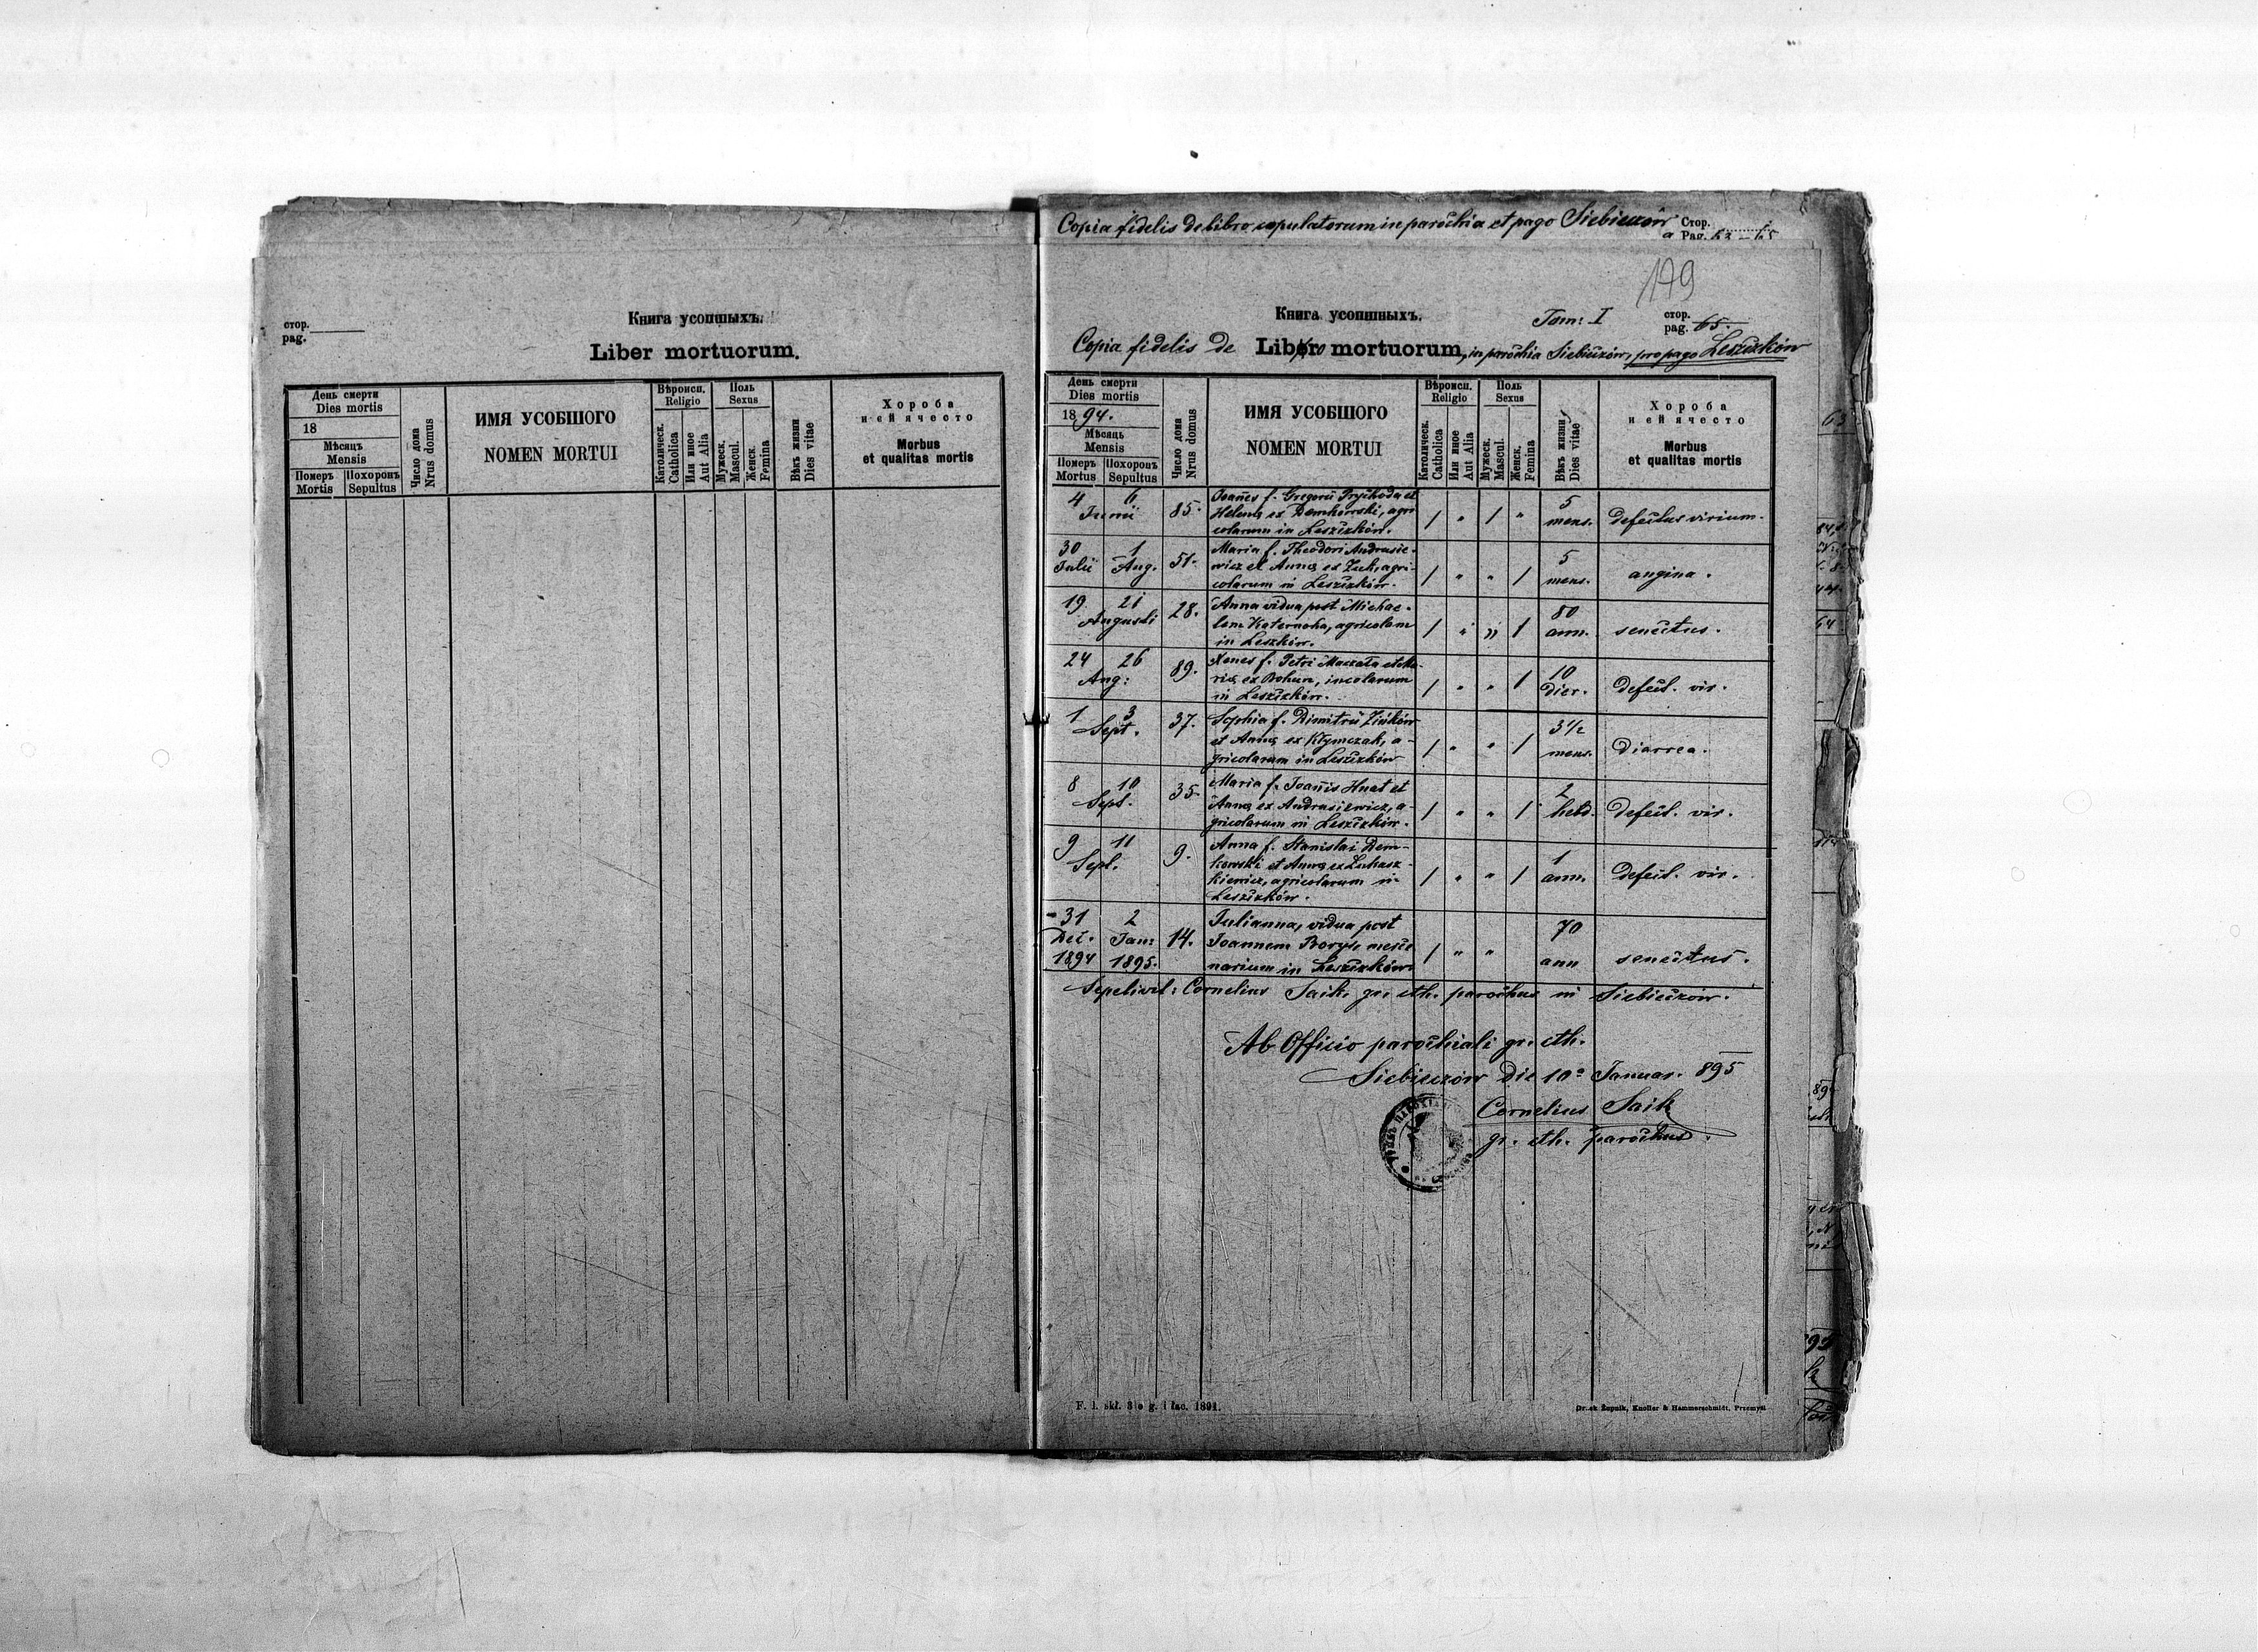 стор.
pag.
Книга усопшыхъ.
Liber mortuorum.
День смерти
Dies mortis
18
Мѣсяцъ
Mensis
Померъ
Mortis
Похоронъ
Sepultus
Число дома
Nrus domus
ИМЯ УСОБШОГО
NOMEN MORTUI
Вѣроисп.
Religio
Католическ.
Catholica
Или иное
Aut Alia
Поль
Sexus
Мужеск.
Mascul.
Женск.
Femina
Вѣкъ жизни
Dies vitae
Хороба
и ей ячесто
Morbus
et qualitas mortis
Copia fidelis de libro copulatorum in parochia et pago Siebieczów
Стор.
a Pag. 63 – 65
179
Книга усопшныхъ.
Tom: I
стор.
pag. 65.
Copia fidelis de Libro mortuorum, in parochia Siebieczów, pro pago Leszczków
День смерти
Dies mortis
1894.
Мѣсяць
Mensis
Померъ
Mortus
Похоронъ
Sepultus
Число дома
Nrus domus
ИМЯ УСОБШОГО
NOMEN MORTUI
Вѣроисп.
Religio
Католическ.
Catholica
Или иное
Aut Alia
Поль
Sexus
Мужеск.
Mascul.
Женск.
Femina
Вѣкъ жизни
Dies vitae
Хороба
и ей ячесто
Morbus
et qualitas mortis
4 6 Junii 85. Joanes f. Gregorii Prychoda et
Helenę ex Demkowski, agri
colarum in Leszczków. / " / " 5 mens. defectus virium.
30 Julii 1 Aug. 51. Maria f. Theodori Andrasie-
wicz et Annę ex Zuk, agri-
colarum in Leszczków. / " " / 5 mens. angina.
19 21 Augusti 28. Anna vidua post Michae-
lem Katernoha, agricolam
in Leszków. / " " / 80 ann. senectus.
24 26 Aug: 89. Xenes f. Petri Maczała et Ma-
rię ex Bohun, incolarum
in Leszczków. / " " / 10 dier. defect. vir.
1 3 Sept. 37. Sophia f. Dimitrii Zińków
et Annę ex Kłymczak, a-
gricolarum in Leszczków / " " / 3 1/2 mens. diarrea.
8 10 Sept. 35. Maria f. Joanis Hnat et
Annę ex Andrasiewicz, a-
gricolarum in Leszczków. / " " / 2 hebd. defect. vir.
9 11 Sept. 9. Anna f. Stanislai Dem-
kowski et Annę ex Lukasz-
kiewicz, agricolarum in
Leszczków. / " " / 1 ann. defect. vir.
31 Dec. 1894 2 Jan: 1895. 14. Julianna, vidua post
Joannem Borys, merce
narium in Leszczków / " " 70 ann senectus.
Sepelivit: Cornelius Saik, gr. cth. parochus in Siebieczów.
Ab Officio parochiali gr. cth.
Siebieczów die 10a Januar. 895
Cornelius Saik
gr. cth. parochus.
F. l. skł. 3 e g. i łac. 1891.
Druk Żupnik, Knoller & Hammerschmidt, Przemyśl